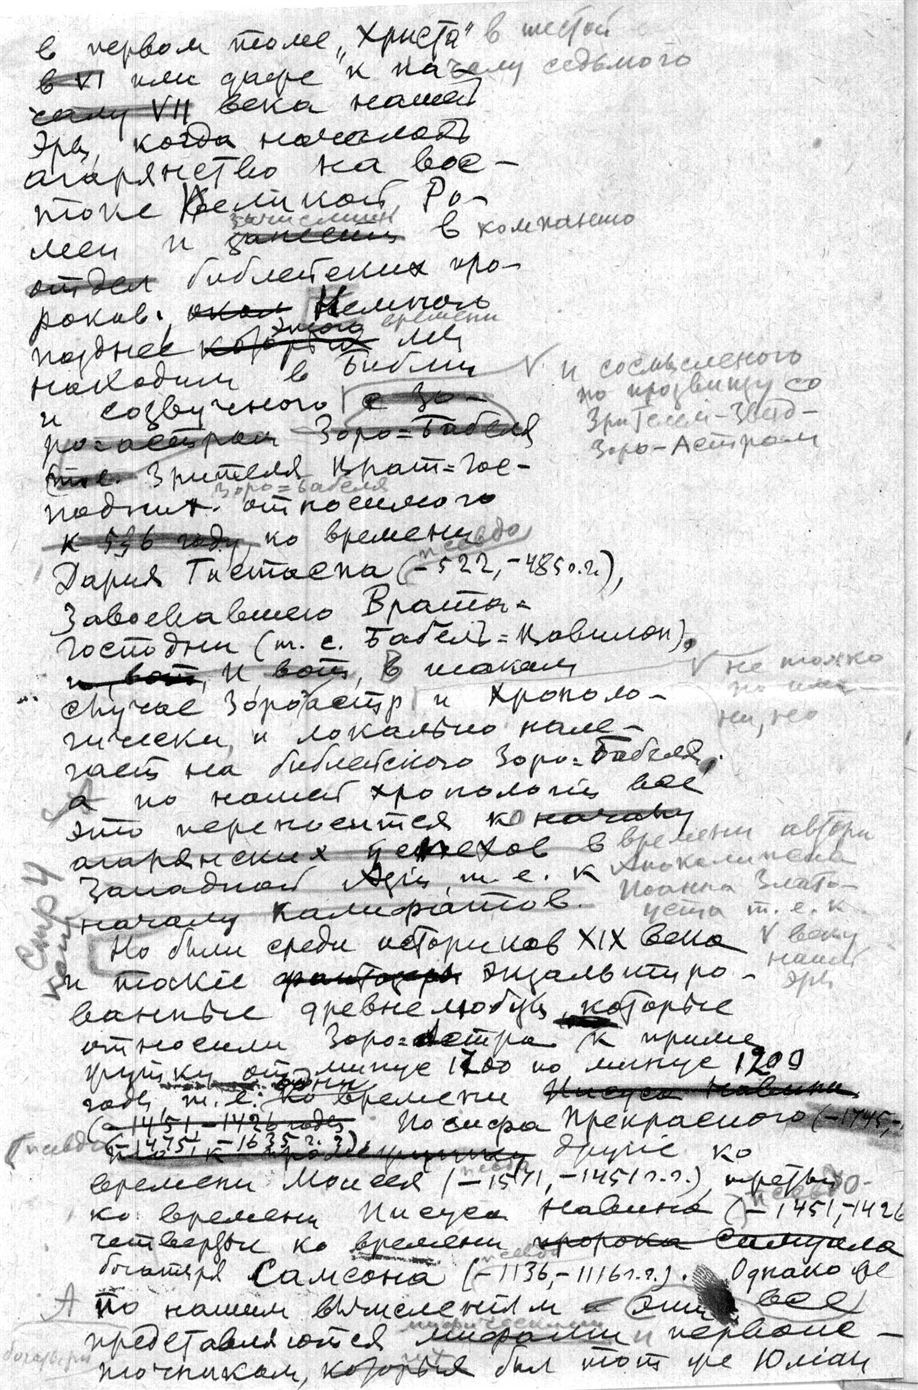 в первом томе „Христа" в шестой
в VI или даже к на- чалу седьмого
чалу VII века нашей
эры, когда началось
агарянство на вос-
токе Великой Ро-
меи и зачислили занесли в компанию
отдел библейских про-
роков. Немного
позднее этого времени мы
находим в Библии
и созвучного с Зо-
ро-астром Зоро=Бабеля
и сосмысленого
по прозвищу со
Зрителем-Звезд-
Зоро-Астром
т.е. Зрителя Врат=Гос-
подних Зоро=Бабеля относимого
к 536 году, ко времени
псевдо
Дария Гистаспа (–522,–485 г.г.),
Завоевавшего Врата=
Господни (т. е. Бабель=Вавилон).
и вот, И вот, В таком
случае Зороастр и хроноло-
не только
по име-
ни, но
гически, и локально нале-
гает на библейского Зоро=Бабеля,
а по нашей хронологии всё
это переносится ко началу
агарянских успехов в
Западной Азии, т. е. к
началу Калифатов.
времени автора
Апокалипсиса
Иоанна Злато-
уста т. е. к
V веку
нашей
эры
стр 4
Но были среди историков XIX века
и такие фантазеры экзальтиро-
ванные древнелюбцы, которые
относили Зоро=Астра к
минус 1700 по минус 1200
году т. е. одни ко времени Иисуса Навина
(–1451–1426 годы Иосифа Прекрасного (–1745,–
–1635 г.г.), другие ко
псевдо
времени Моисея (–1571,–1451 г.г.) третьи
псевдо-
ко времени Иисуса Навина (–1451,–1426
четвертые ко времени пророка Самуила
псевдо
богатыря Самсона (–1136,–1116 г.г.). Однако же
А по нашим вычислениям эти все
представляются мифами и первоис-
мифическими
богатыри
точником, которых их был тот же Юлиан